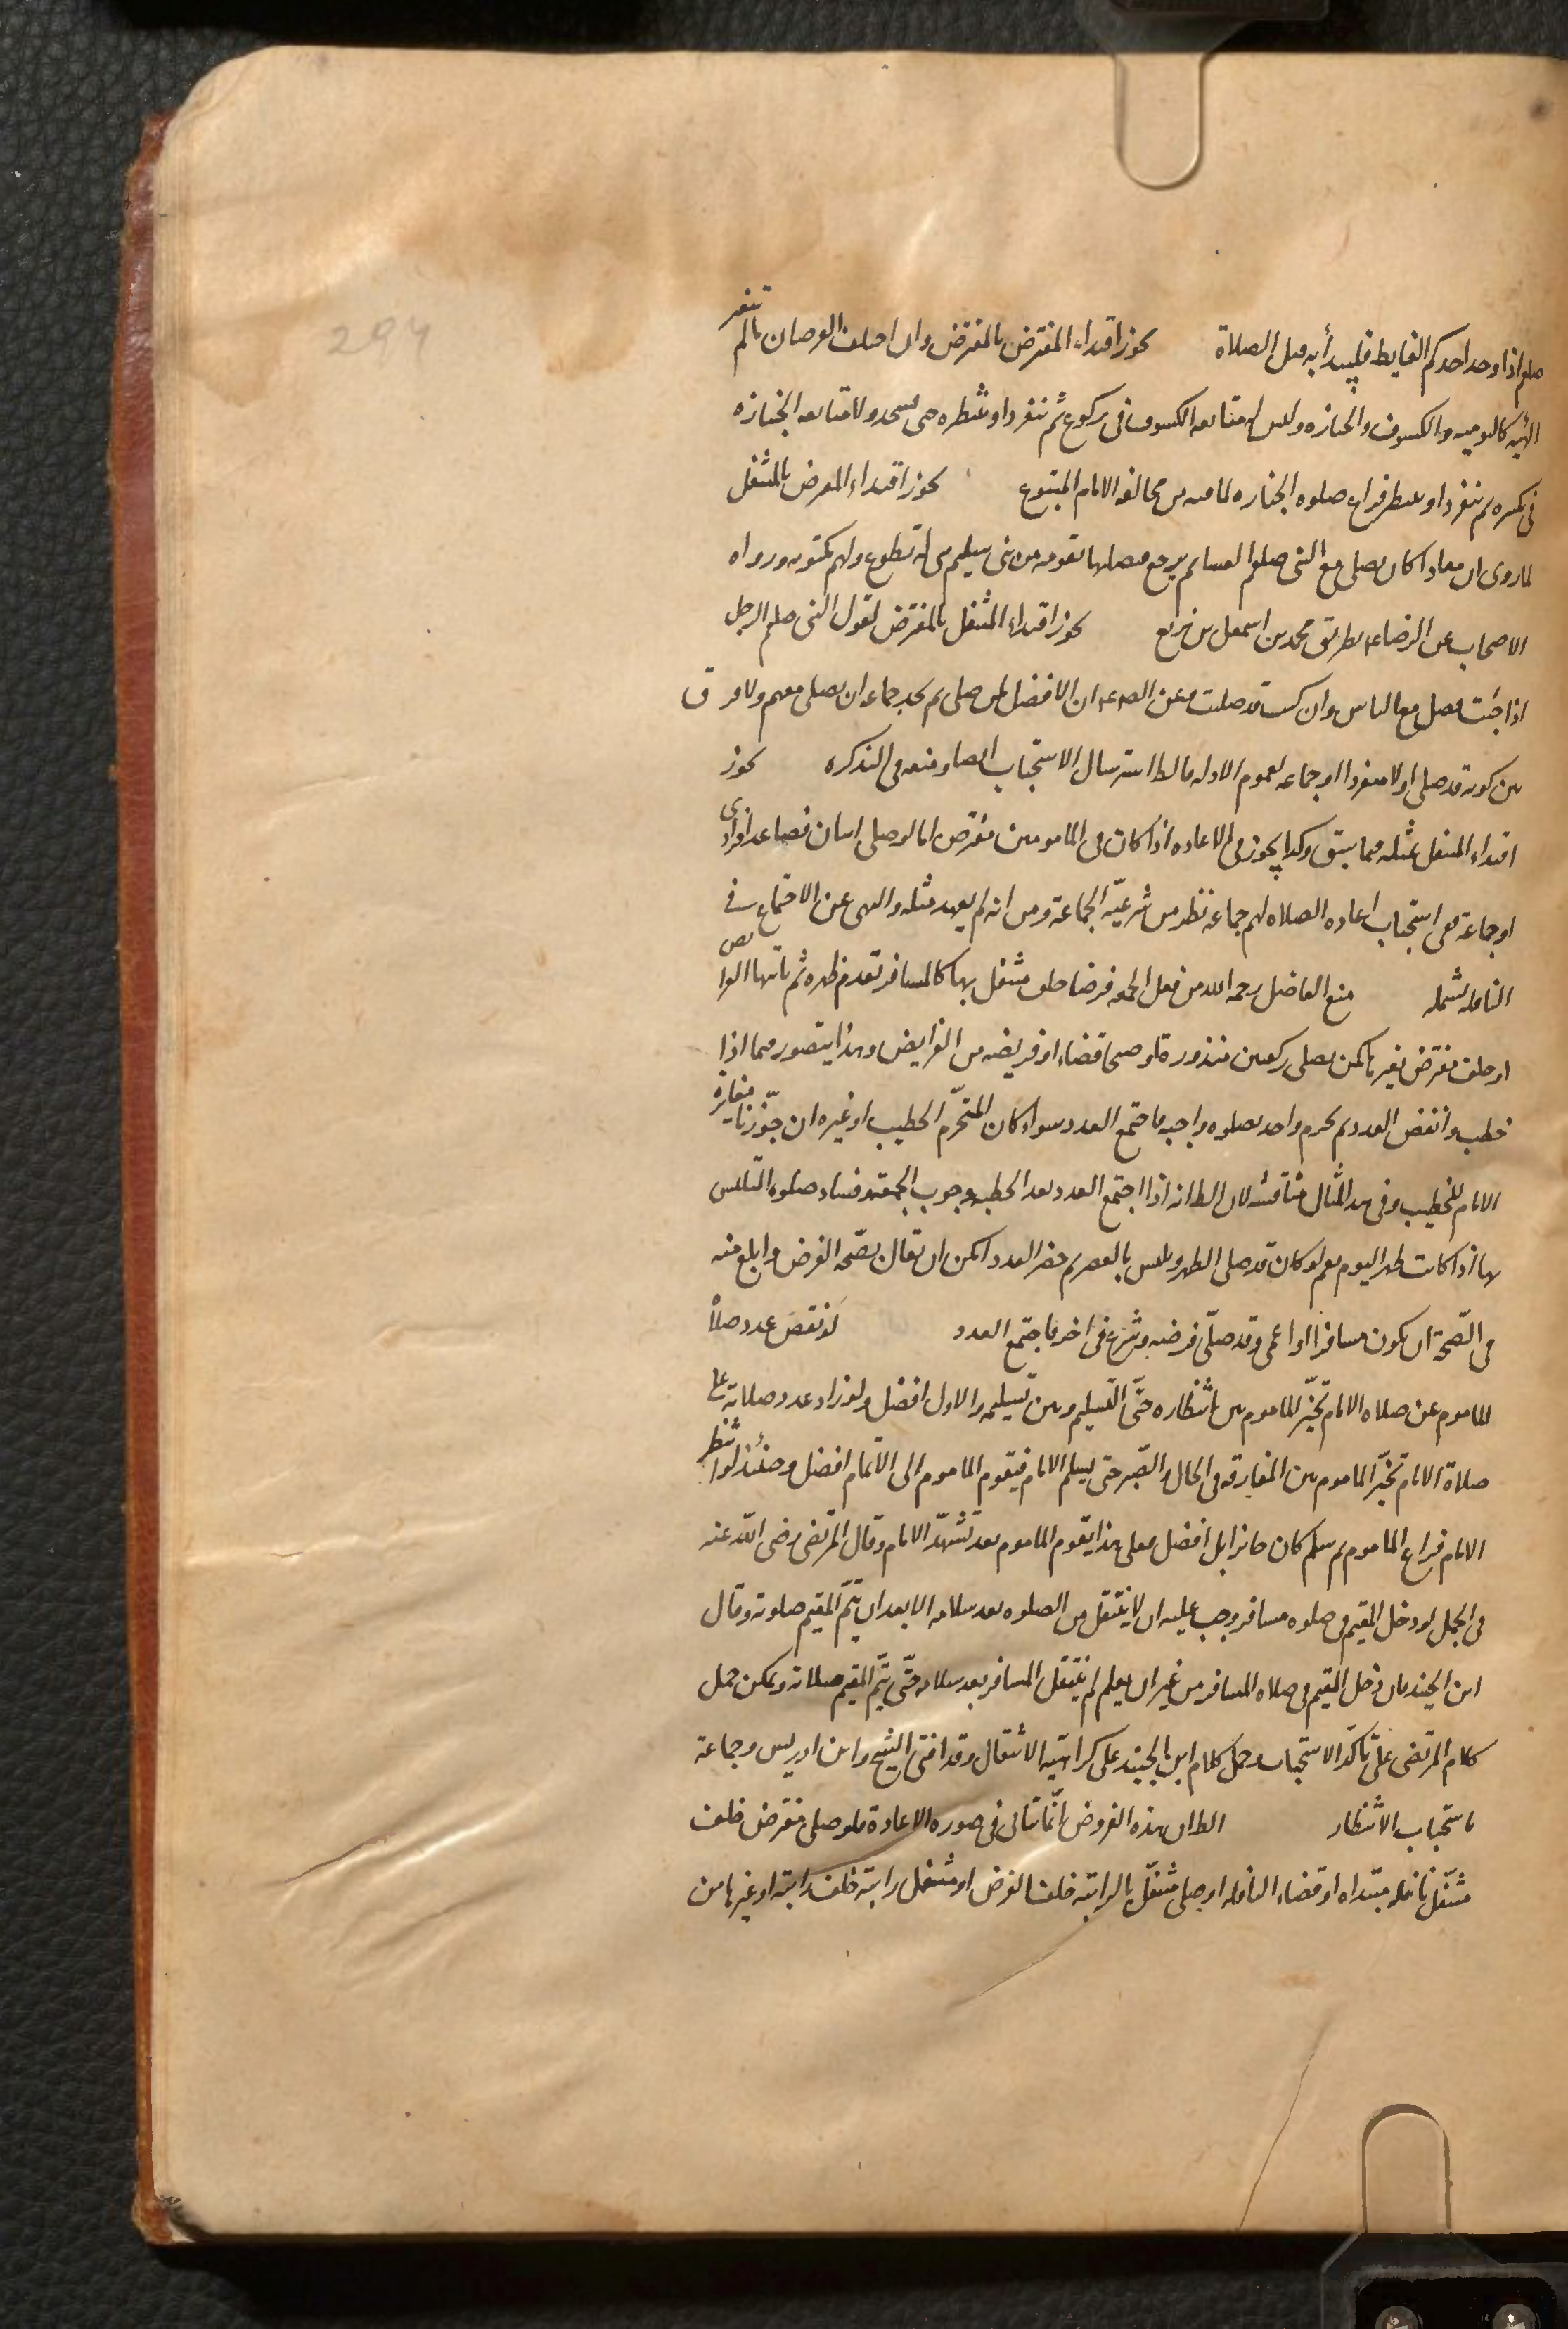 صلعم اذا وجد احدكم الغايط فليبدأ به قبل الصلاة يجوز اقتداء المفترض بالمفترض وان اختلف الفرضان ما لم تتغير
الهيئة كاليومية والكسوف والجنازه وليس له متابعه الكسوف في ركوع ثم ينفرد او ينتظره حتى يسجد ولا متابعه الجنازه
في تكبيره ثم ينفرد او ينتظر فراغ صلوه الجنازه لما فيه من مخالفه الامام المتبوع يجوز اقتداء المفترض بالمتنفل
لما روى ان معاذا كان يصلى مع النبى صلعم العشا ثم يرجع فيصليها بقومه من بنى سليم هى له تطوع ولهم مكتوبه ورواه
الاصحاب عن الرضا ع بطريق محمد بن اسمعيل بن بزيع يجوز اقتداء المتنفل بالمفترض لقول النبى صلعم لرجل
اذا جئت فصل مع الناس وان كنت قد صليت وعن الصادق ع ان الافضل لمن صلى ثم يجد جماعه ان يصلى معهم ولا فرق
بين كونه قد صلى اولا منفردا او جماعه لعموم الادله فالظ استرسال الاستحباب ايضا ومنعه فى التذكره يجوز
اقتداء المتنفل بمثله فيما سبق وكذا يجوز فى الاعاده اذا كان فى المامومين مفترض اما لو صلى اسان فصاعدا فرادى
او جماعة ففى استحباب اعاده الصلاه لهم جماعه نظر من شرعيّه الجماعة ومن انه لم يعهد مثله والنهى عن الاجتماع في
النافله يشمله منع الفاضل رحمه الله من فعل الجمعه فرضا خلف متنفل بها كالمسافر تقدم ظهره ثم ياتيها او ناقص
او خلف مفترض بغيرها كمن يصلى ركعتين منذورة قال وصبحا قضاء او فريضه من الفرايض وهذا يتصور فيما اذا
خطب وانفض العدد ثم تحرم واحد بصلوه واجبه فاجتمع العدد سواء كان المتحرّم الخطيب او غيره ان جوّزنا مغايرة
الامام للخطيب وفى هذا المثال مناقشه لان الظ انه اذا اجتمع العدد بعد الخطبه وجوب الجمعه وفساد صلوه التلبس
بها اذا كانت ظهر اليوم نعم لو كان قد صلى الظهر وتلبس بالعصر ثم حضر العدد امكن ان يقال بصحّه الفرض وابلغ منه
فى الصّحة ان يكون مسافرا او اعمى وقد صلّى فرضه وشرع فى اخر فاجتمع العدد لو نقص عدد صلاة
الماموم عن صلاه الامام تخيّر الماموم بين انتظاره حتّى التسليم وبين تسليمه والاول افضل ولو زاد عدد صلاته على
صلاة الامام تخيّر الماموم بين المفارقه فى الحال والصّبر حتى يسلم الامام فيقوم الماموم الى الاتمام افضل وحينئذ لو انتظر
الامام فراغ الماموم ثم سلم كان جائزا بل افضل فعلى هذا يقوم الماموم بعد تشهّد الامام وقال المرتضى رضى الله عنه
فى الجمل لو دخل المقيم فى صلوه مسافر وجب عليه ان لا ينتقل من الصلوه بعد سلامه الا بعد ان يتمّ المقيم صلوته وقال
ابن الجنيد فان دخل المقيم فى صلاه المسافر من غير ان يعلم لم ينتقل المسافر بعد سلامه حتّى يتّم المقيم صلاته ويمكن حمل
كلام المرتضى على تأكد الاستحباب وحمل كلام ابن الجنيد على كراهيّه الانتقال وقد افتى الشيخ وابن ادريس وجماعة
باستحباب الانتظار الظ ان هذه الفروض انّما تتأتى فى صوره الاعادة فلو صلى مفترض خلف
متنفل نافله مبتداه او قضاء النافله او صلى متنفل بالراتبه خلف الفرض او متنفل راتبة خلف راتبة او غيرها من